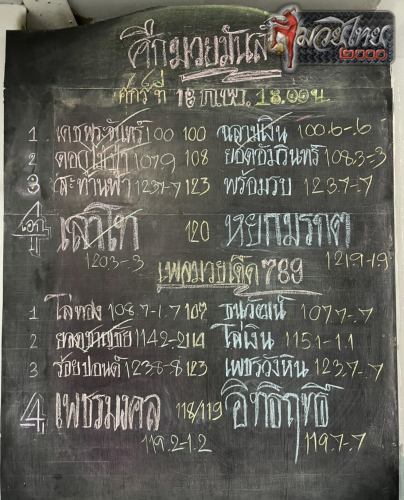 มวยไทย
2000
ศึกมวยมันส์
ศุกร์ที่ 18.00น.
1 เดชพระจันทร์ 100 100 ฉลามเงิน 100.6-.6
2 107.9 108 ยอดอัมรินทร์ 108.3-.3
3 สะท้านฟ้า 123.7-.7 123 พร้อมรบ 123.7-.7
4 เอก เลาไท 120 หยกมรกต
120.3-.3 121.9-1.9
เพลงมวยเด็ด 789
1 ไล่ทอง 108.7-1.7 107 ธนวัฒน์ 107.7-.7
2 114.2-.2 114 ไล่เงิน 115.1-1.1
3 ร้อยปอนด์ 123.8-.8 123 เพชรวังหิน 123.7-.7
4 เพชรมงคล 118/119 อิทธิฤทธิ์
119.2-1.2 119.7-.7